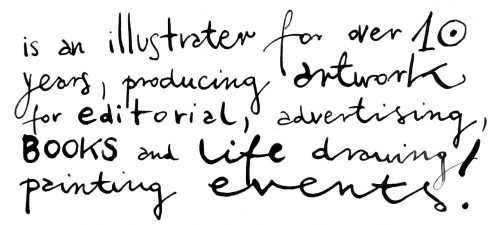 is an illustrater for over 10
years, producing artwork
for editorial, advertising,
BOOKS and Life drawing/
painting events.